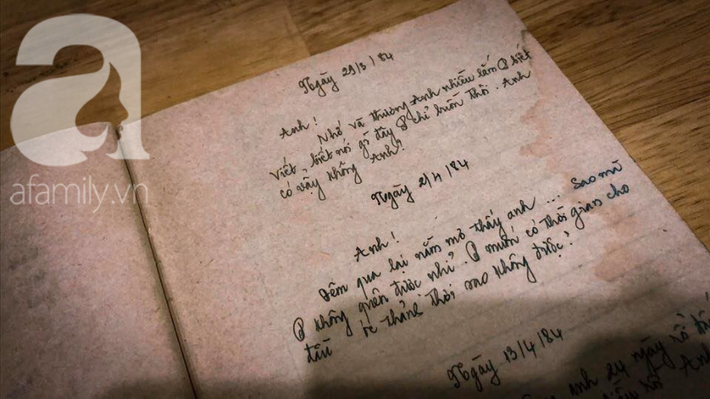 a
afamily.vn
Ngày 29/3/84
Anh!
Nhớ và thương Anh nhiều lắm Q biết
viết, biết nói gì đây Q chỉ buồn thôi. Anh
có vậy không Anh?
Ngày 2/4/84
Anh!
Đêm qua lại nằm mơ thấy anh ... Sao mà
Q không quên được nhỉ. Q muốn có thời gian cho
đầu thảnh thơi sao không được?
Ngày 13/4/84
anh 24 ngày rồ
Anh